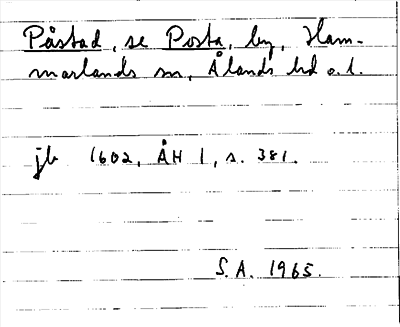 Påstad, se Posta, by, Ham-
marlands sn, Ålands hd o. l.
jb 1602, ÅH 1, s. 381.
S.A. 1965.